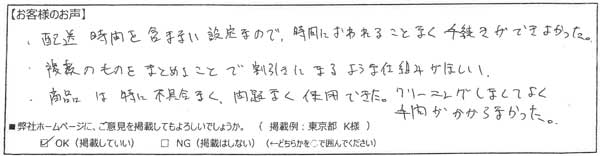 【お客様のお声】
・配送時間を含まない設定なので、時間におわれることなく手続きができよかった。
・複数のものをまとめることで割引きになるような仕組みがほしい。
・商品は特に不具合なく、問題なく使用できた。クリーニングしなくてよく
手間がかからなかった。
■弊社ホームページに、ご意見を掲載してもよろしいでしょうか。（掲載例：東京都 K様）
☑ OK（掲載していい） □ NG（掲載はしない）（←どちらかを○で囲んでください）